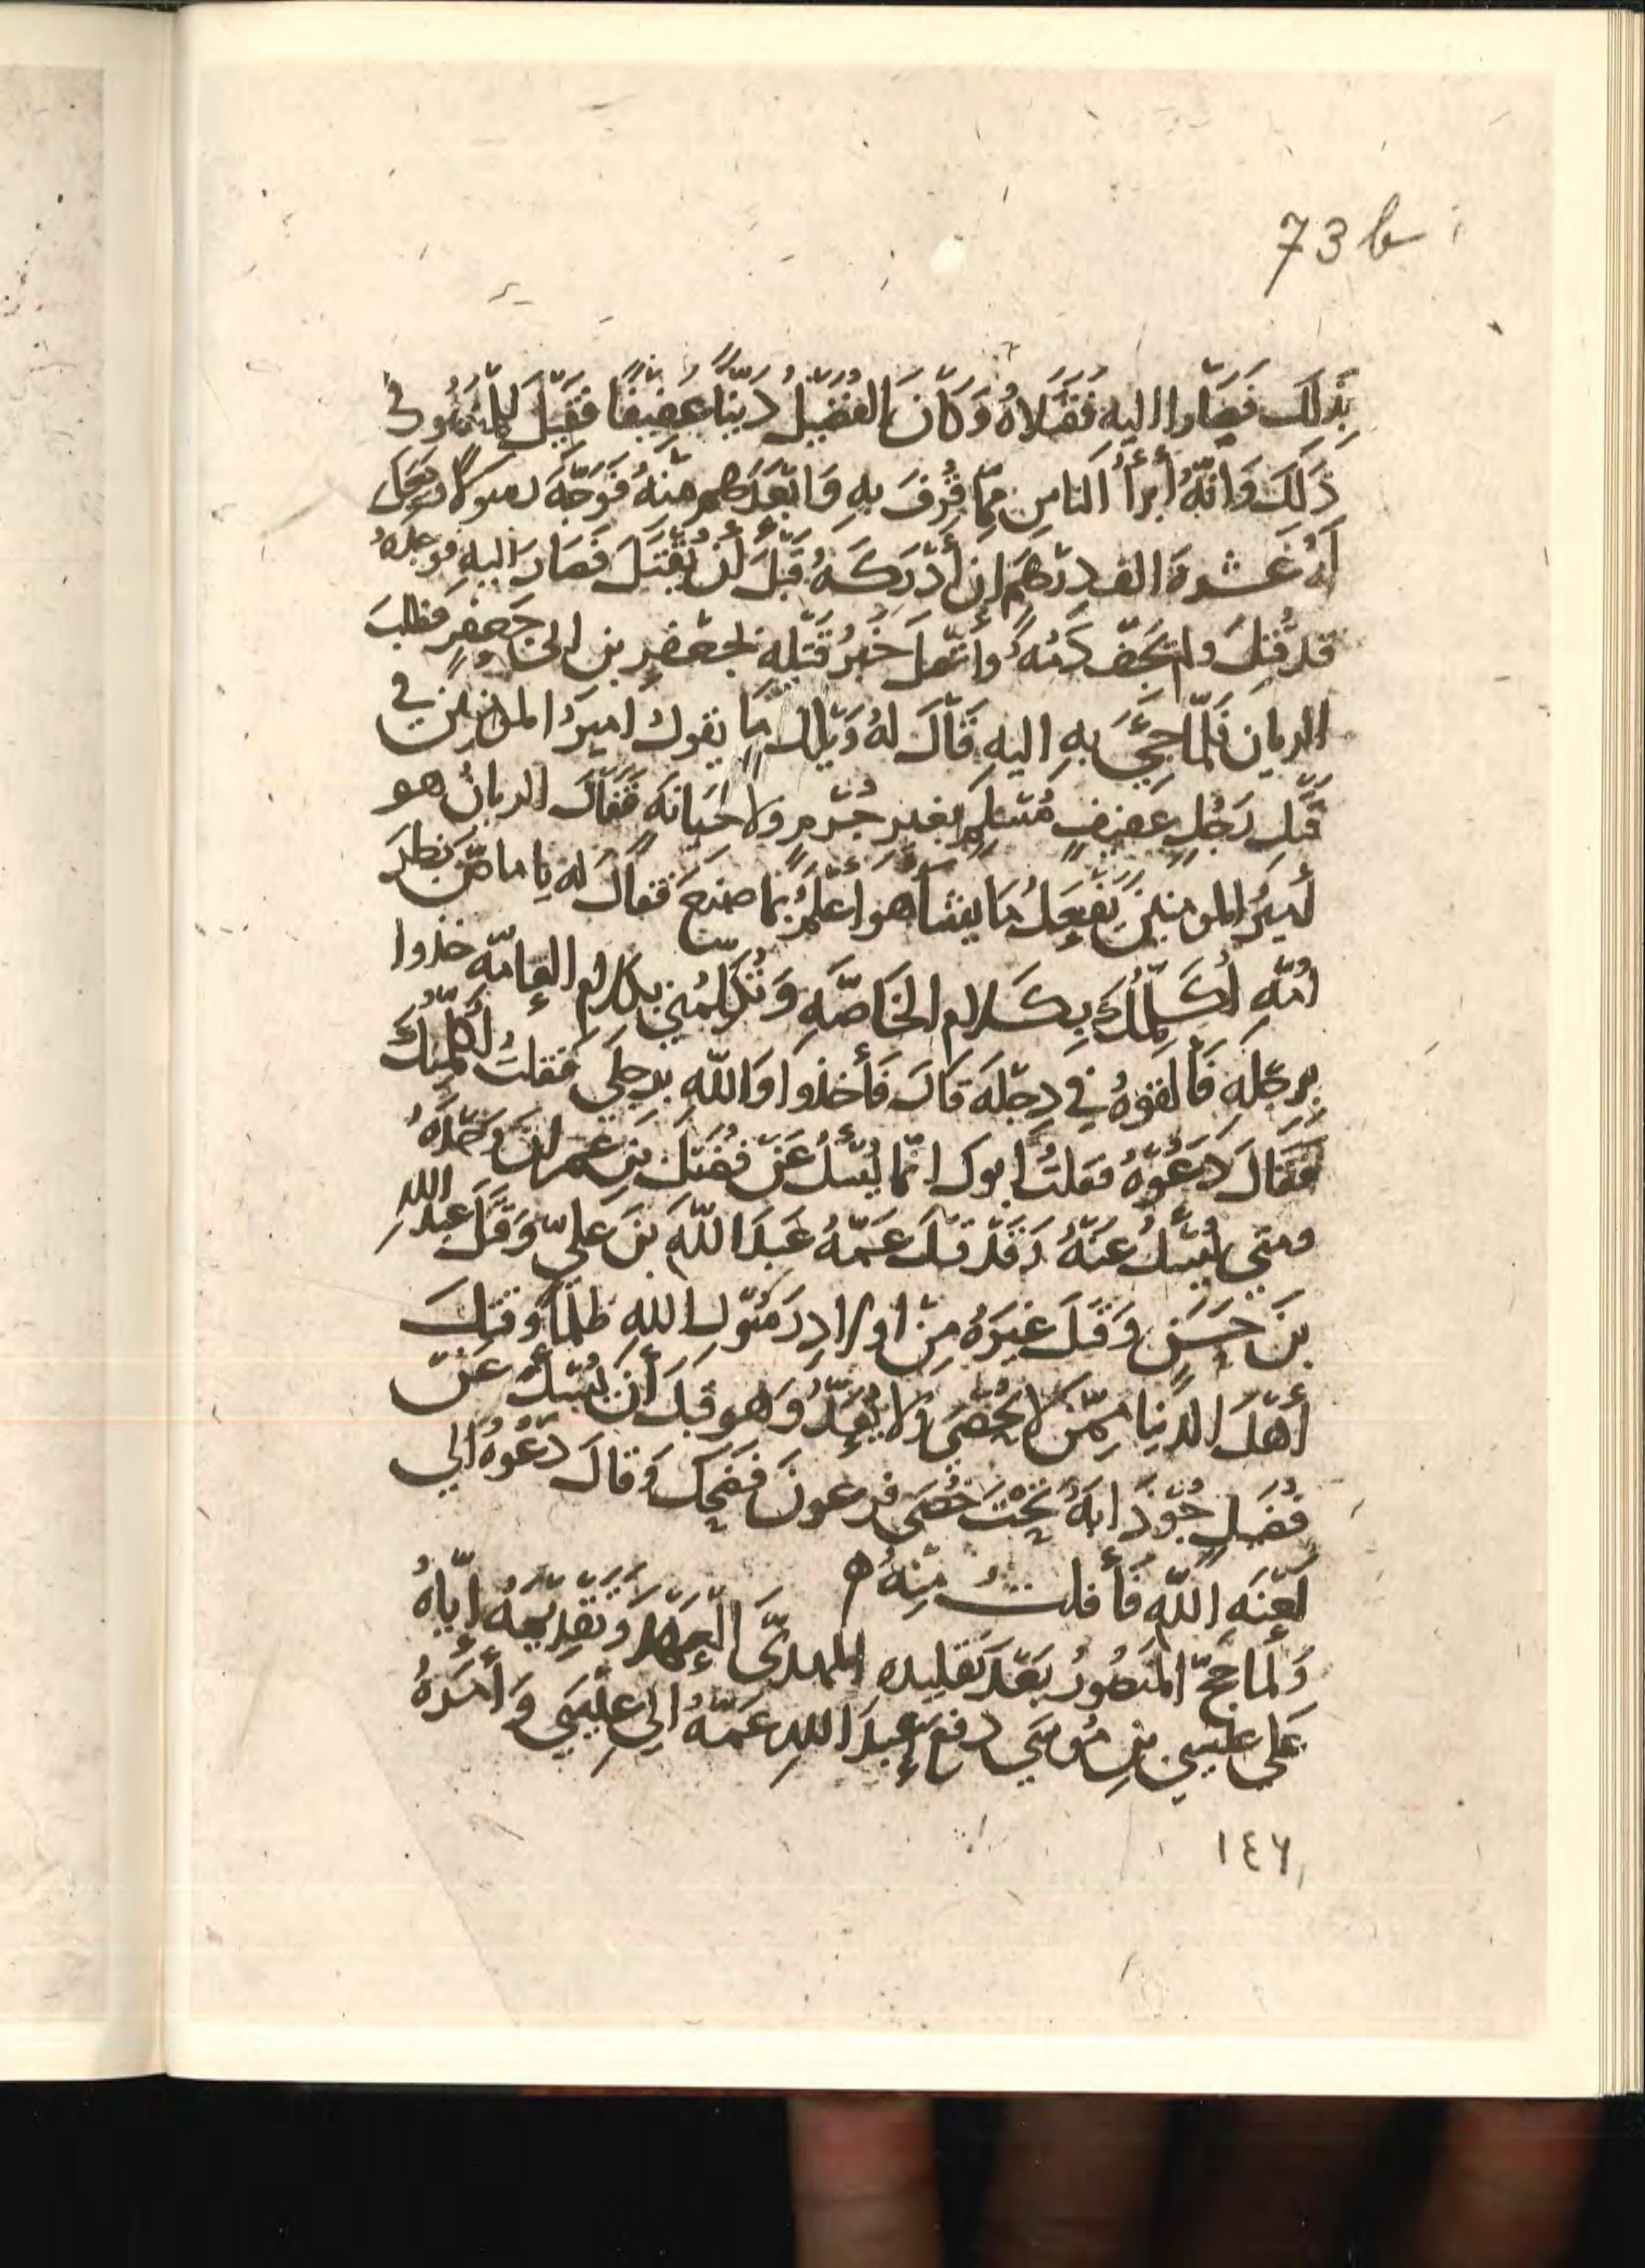 73 b
بذلك فصاروا اليه فقتلاه وكان الفضيل دينا عفيفا فقيل للمنصور في
ذلك وانه أبرأ الناس مما قرف به وابعدهم منه فوجه رسولا وجعل
له عشرة الف درهم إن أدركه قبل أن يقتل فصار اليه فوجده
قد قتل ولم يجف دمه واتصل خبر قتله بجعفر بن ابي جعفر فطلب
الريان فلما جئ به اليه قال له ويلك ما يقول امير المؤمنين في
قتل رجل عفيف مسلم بغير جرم ولا خيانة فقال الريان هو
أمير المومنين يفعل ما يشأ هو أعلم بما صنع فقال له يا ماص بظر
امه أكلمك بكلام الخاصه وتكلمني بكلام العامه خذوا
برجله فألقوه في دجله قال فأخذوا والله برجلي فقلت أكلمك
فقال دعوه فقلت ابوك انما يسئل عن فضيل بن عمران وحده
ومتى يسئل عنه وقد قتل عمه عبد الله بن علي وقتل عبد الله
بن حسن وقتل غيره من اولاد رسول الله ظلما وقتل
أهل الدنيا ممن لا يحصى ولا يعد وهو قبل أن يسئل عن
فضيل جوذابة تحت خصى فرعون فضحك وقال دعوه الي
لعنه الله فأفلت منه ه
ولما حج المنصور بعد تقليده المهدي العهد وتقديمه اياه
على عيسى بن موسى دفع عبد الله عمه الي عيسى وأمره
١٤٦